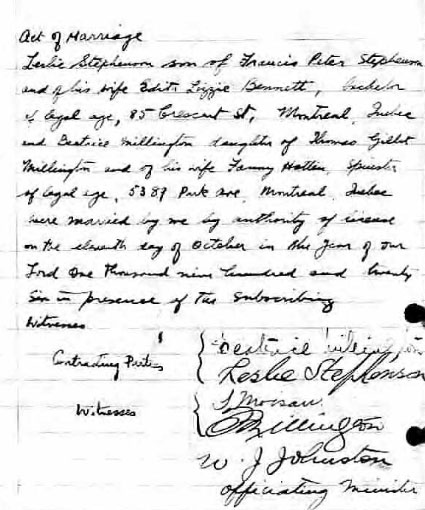 Act of Marriage
Leslie Stephenson son of Francis Peter Stephenson
and of his wife Edith Lizzie Bennett, bachelor
of legal age, 85 Crescent St, Montreal, Quebec
and Beatrice Millington daughter of Thomas Gilbt
Millington and of his wife Fanny Hatten, Spinster
of legal age, 5387 Park Ave, Montreal, Quebec
were married by me by authority of license
on the eleventh day of October in the Year of our
Lord One thousand nine hundred and twenty
Six in presence of the subscribing
Witnesses
Contracting Parties
Beatrice Millington
Leslie Stephenson
Witnesses
Millington
W. J. Johnston
Officiating Minister